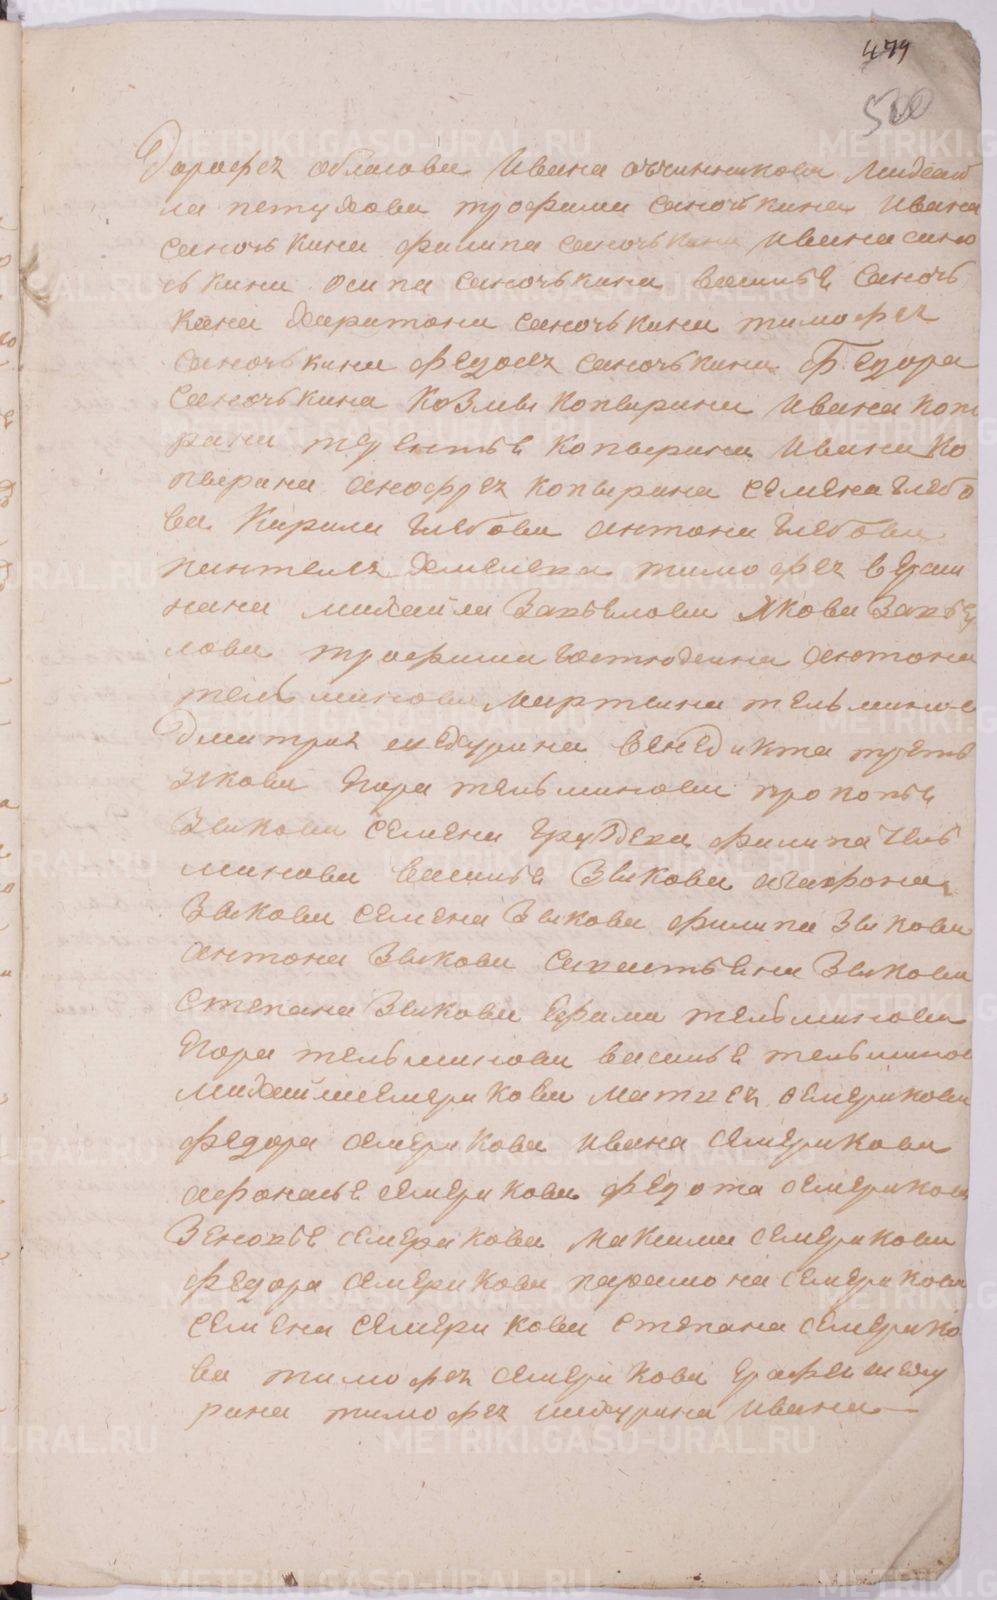 479
500
Дорофеѧ обласова Ивана овчинникова Михаи
ла петухова трофима саночькина Ивана
саночькина филипа саночькина ивана сано
чькина осипа саночькина василье саноч
кина Харитона саночькина тимофеѧ
саночькина федосеѧ саночькина Федора
саночькина Козмы Копырина Ивана Копы
рина Копырина Ивана Ко
пырина анофреѧ копырина семена глебо
ва Кирила глебова антона глебова
пантелеѧ хмелева тимофеѧ вершинина
михаила Захвылова Якова
лова трофима антона
тельминова мартына тельминова
Дмитриѧ шадурина венедикта треть
якова Егора тельминова прокопье
Зыкова семена груздева филипа тель
минова василье Зыкова агафона
Зыкова семена Зыкова филипа Зыкова
антона Зыкова савастьѧна Зыкова
степана Зыкова Ефима тельминова
Егора тельминова василье тельминов
михаила семерикова матвеѧ семерикова
федора семерикова ивана семерикова
афонасье семерикова федота семерикова
Зеновье семерикова максима семерикова
федора семерикова парамона семерикова
семена семерикова степана семерико
ва тимофеѧ семерикова ерофеѧ шаду
рина тимофеѧ шадурина ивана
METRIKI.GASO-URAL.RU